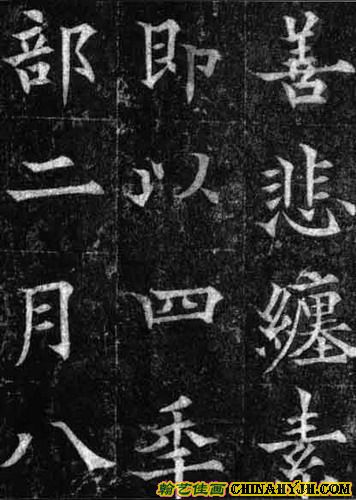 善悲纏素
即以四年
部二月八
翰艺佳画
CHINAHYJH.COM